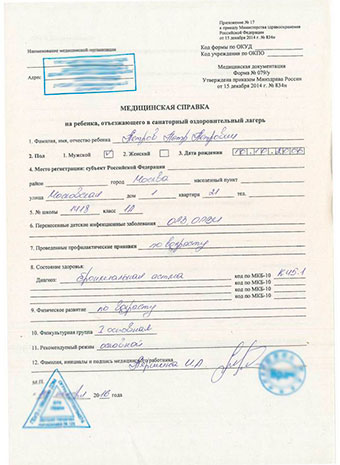 Приложение № 17
к приказу Министерства здравоохранения
Российской Федерации
от 15 декабря 2014 г. № 834н
Наименование медицинской организации
Код формы по ОКУД
Код учреждения по ОКПО
Адрес
Медицинская документация
Форма № 079/у
Утверждена приказом Минздрава России
от 15 декабря 2014 г. № 834н
МЕДИЦИНСКАЯ СПРАВКА
на ребенка, отъезжающего в санаторный оздоровительный лагерь
1. Фамилия, имя, отчество ребенка Петров Петр Петрович
2. Пол 1. Мужской 2. Женский 3. Дата рождения
4. Место регистрации: субъект Российской Федерации
район город Москва населенный пункт
улица Московская дом 1 квартира 21 тел.
5. № школы 1418 класс 1А
6. Перенесенные детские инфекционные заболевания ОРЗ, ОРВИ
7. Проведенные профилактические прививки по возрасту
8. Состояние здоровья:
Диагноз: бронхиальная астма код по МКБ-10
код по МКБ-10
код по МКБ-10
код по МКБ-10
9. Физическое развитие по возрасту
10. Физкультурная группа I основная
11. Рекомендуемый режим основной
12. Фамилия, инициалы и подпись медицинского работника
М.П.